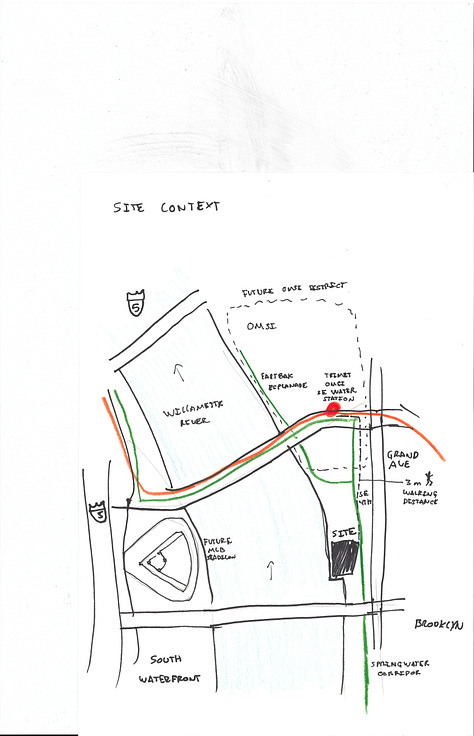 SITE CONTEXT
5
FUTURE OMSI DISTRICT
OMSI
EASTBANK
ESPLANADE
TRIMET
OMSI
SE WATER
STATION
WILLAMETTE
RIVER
GRAND
AVE
3 m
WALKING
DISTANCE
SE
4TH
5
FUTURE
MLB
STADIUM
SITE
BROOKLYN
SOUTH
WATERFRONT
SPRINGWATER
CORRIDOR